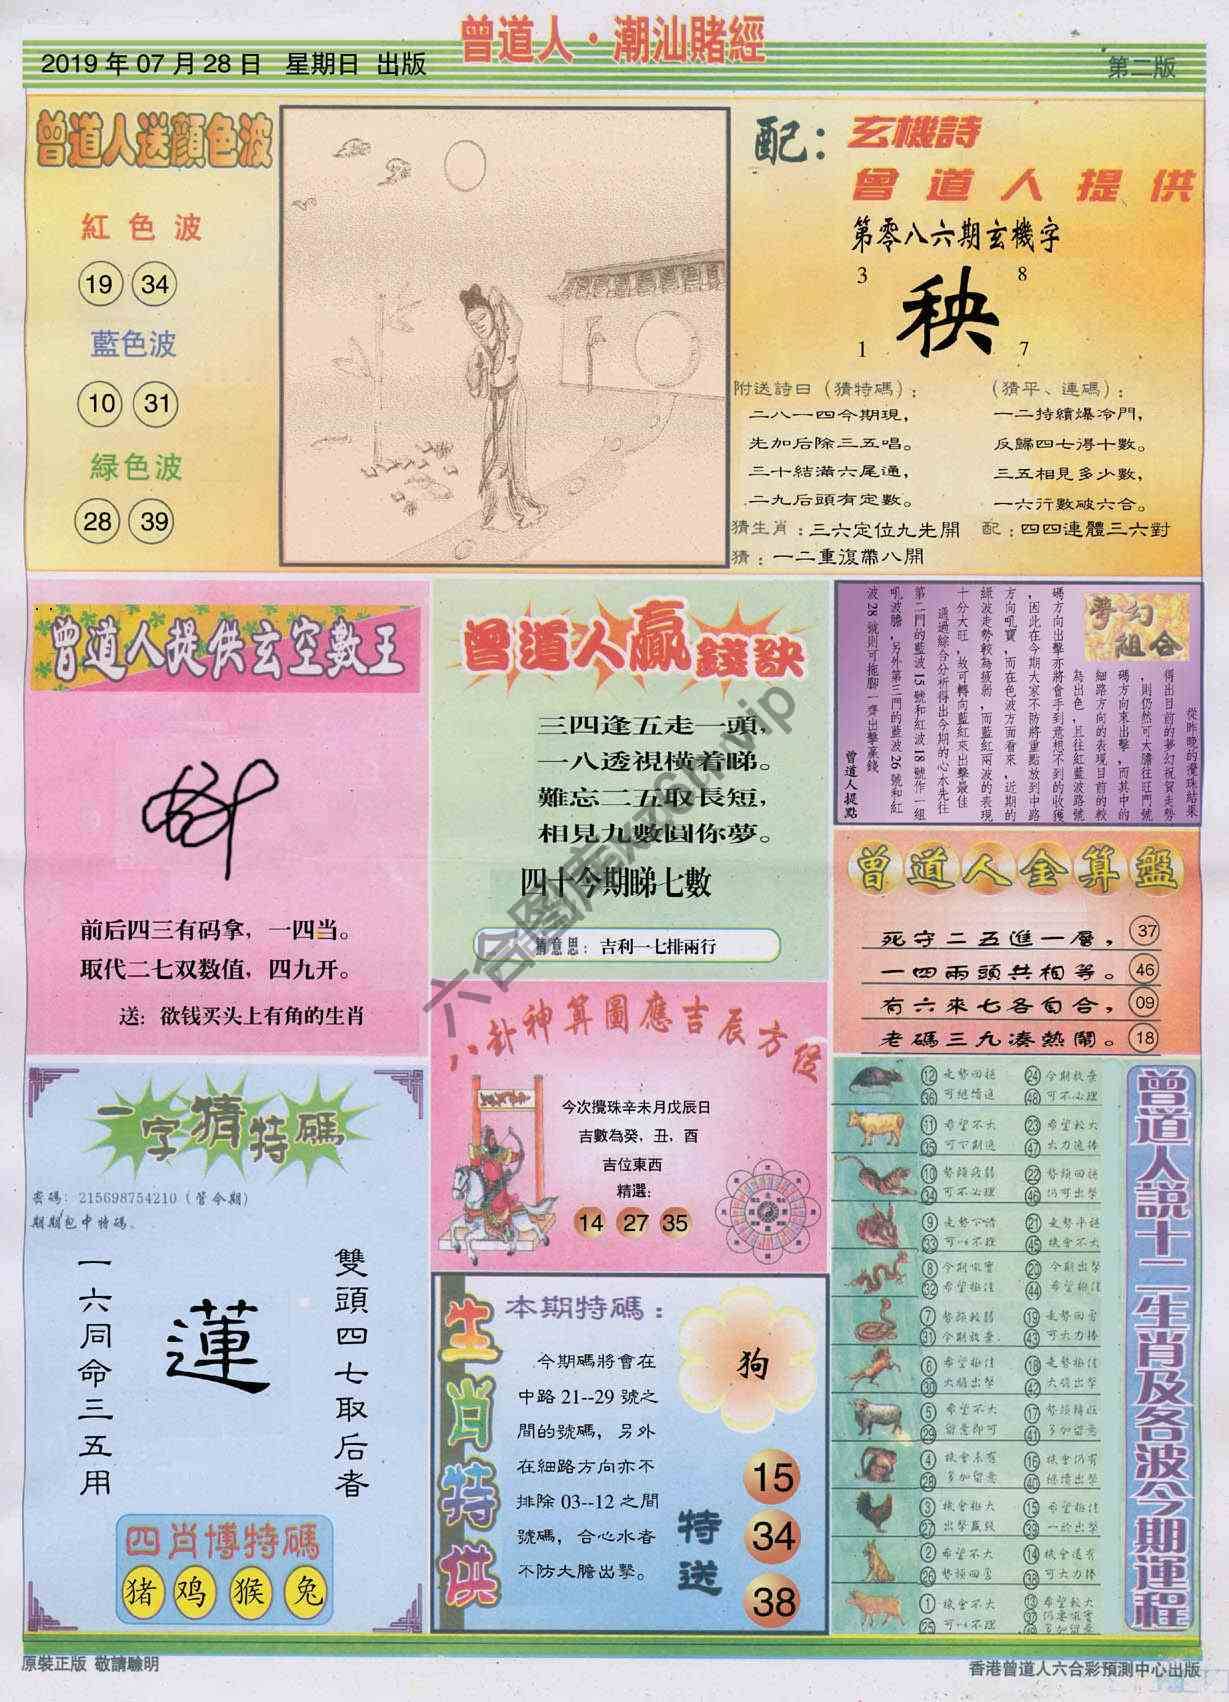 曾道人·潮汕賭經
2019年07月28日 星期日 出版
第二版
曾道人送顏色波
紅色波
19 34
藍色波
10 31
緑色波
28 39
配：玄機詩
曾道人提供
第零八六期玄機字
3 8
秧
1 7
附送詩曰（猜特碼）：
二八一四今期現，
先加后除三五唱。
三十結滿六尾通，
二九后頭有定數。
（猜平、連碼）：
一二持續爆冷門，
反歸四七得十數。
三五相見多少數，
一六行數破六合。
猜生肖：三六定位九先開
配：四四連體三六對
猜：一二重復帶八開
曾道人提供玄空數王
前后四三有码拿，一四当。
取代二七双数值，四九开。
送：欲钱买头上有角的生肖
曾道人贏錢訣
三四逢五走一頭，
一八透視橫着睇。
難忘二五取長短，
相見九數圓你夢。
四十今期睇七數
猜意思：吉利一七排兩行
夢幻
組合
從昨晚的攪珠結果
得出目前的夢幻祝賀走勢
，則仍然可大膽往旺門號
碼方向來出擊，而其中的
細路方向的表現目前的較
為出色，且往紅藍波路號
碼方向出擊亦將會手到意想不到的收獲
，因此在今期大家不防將重點放到中路
方向吼寶，而在色波方面看來，近期的
綠波走勢較為疲弱，而藍紅兩波的表現
十分大旺，故可轉向藍紅來出擊最佳
通過綜合分析得出今期的心水先往
第二門的藍波15號和紅波18號作一組
吼波膽，另外第三門的藍波26號和紅
波28號則可拖腳一齊出擊贏錢
曾道人提點
曾道人金算盤
死守二五進一層， 37
一四兩頭共相等。 46
有六來七各自合， 09
老碼三九湊熱鬧。 18
八卦神算圖應吉辰方位
今次攪珠辛未月戊辰日
吉數為癸，丑，酉
吉位東西
精選：
14 27 35
一字猜特碼
密碼：215698754210（管今期）
期期包中特碼。
雙頭四七取后者
蓮
一六同命三五用
四肖博特碼
猪 鸡 猴 兔
生肖特供
本期特碼：
狗
今期碼將會在
中路21--29號之
間的號碼，另外
在細路方向亦不
排除03--12之間
號碼，合心水者
不防大膽出擊。
特送
15
34
38
曾道人說十二生肖及各波今期運程
12 走勢回穩 24 今期放棄
36 可繼續追 48 可不必理
11 希望不大 23 希望較大
35 可下制追 47 大力追捧
10 勢頭疲弱 22 勢頭回穩
34 可不必理 46 仍可出擊
9 走勢下滑 21 走勢平穩
33 可以不理 45 機會不大
8 今期吼寶 20 今期出擊
32 希望極佳 44 希望極佳
7 勢頭較弱 19 走勢回勇
31 今期放棄 43 可大力捧
6 希望極佳 18 走勢極佳
30 大膽出擊 42 大膽出擊
5 希望不大 17 勢頭轉旺
29 留意即可 41 多加留意
4 機會未有 16 機會仍有
28 多加留意 40 繼續出擊
3 機會極大 15 希望極佳
27 出擊贏錢 39 一於出擊
2 希望不大 14 機會還有
26 勢頭回勇 38 可大力捧
1 機會不大 13 希望較大
25 可以不理 37 仍要吼實
49 多加留意
原裝正版 敬請驗明
香港曾道人六合彩預測中心出版
六合圖庫xz6h.vip